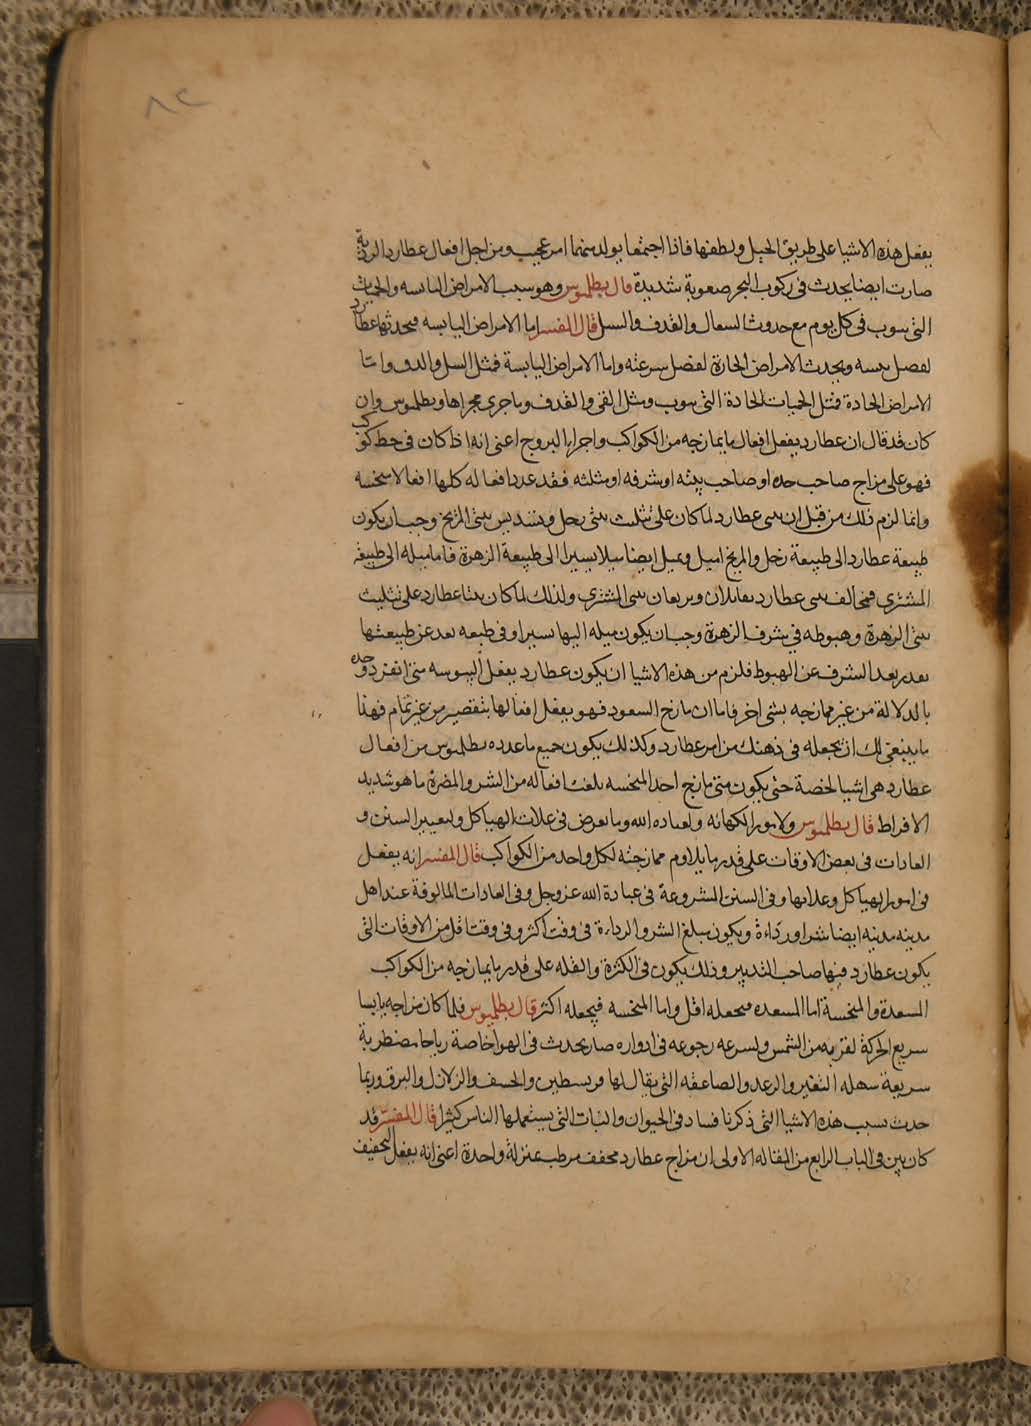 ٨٢
يفعل هذه الاشيا على طريق الحيل ولطفها فاذا اجتمعا يولد منهما امر عجيب ومن اجل افعال عطارد الردية
صارت ايضا يحدث في ركوب البحر صعوبة شديدة قال بطلميوس وهو سبب الامراض اليابسه والحميات
التي تنوب في كل يوم مع حدوث السعال والقذف والسل قال المفسر اما الامراض اليابسه فيحدثها عطارد
لفضل يبسه ويحدث الامراض الحارة لفضل سرعته واما الامراض اليابسة فمثل السل والدق واما
الامراض الحادة فمثل الحميات الحادة التي تنوب ومثل القي والقذف وما جرى مجراها وبطلميوس وان
كان قد قال ان عطارد يفعل افعال ما يمازجه من الكواكب واجزا البروج اعني انه اذا كان في حظ كوكب
فهو على مزاج صاحب حده او صاحب بيته او شرفه او مثلثه فقد عدد افعاله كلها افعالا منحسه
وانما لزم ذلك من قبل ان بيتى عطارد لما كان على تثليث بيتى زحل وتسديس بيتى المريخ وجب ان يكون
طبيعة عطارد الى طبيعة زحل والمريخ اميل ويميل ايضا ميلا يسيرا الى طبيعة الزهرة فاما ميله الى طبيعة
المشتري فيخالف بيتى عطارد يقابلان ويربعان بيتى المشتري ولذلك لما كان بيتا عطارد على تثليث
بيتى الزهرة وهبوطه في شرف الزهرة وجب ان يكون ميله اليها يسيرا وفي طبعه بعد عن طبيعتها
بقدر بعد الشرف عن الهبوط فلزم من هذه الاشيا ان يكون عطارد يفعل اليبوسه متى انفرد وحده
بالدلالة من غير ممازجه بشى اخر فاما ان مازج السعود فهو يفعل افعالها بتقصير من غير تمام فهذا
ما ينبغي لك ان تجعله في ذهنك من امر عطارد وكذلك يكون جميع ما عدده بطلميوس من افعال
عطارد هي اشيا لخصة حتى يكون متى مازج احد المنحسه بلغت افعاله من الشر والمضرة ما هو شديد
الافراط قال بطلميوس ولامور الكهانه ولعباده الله وما يعرض في غلات الهياكل ولتغيير السنن و
العادات في بعض الاوقات على قدر ما يلاوم ممازجته لكل واحد من الكواكب قال المفسر انه يفعل
في امور الهياكل وغلاتها وفي السنن المشروعة في عبادة الله عز وجل وفي العادات المالوفة عند اهل
مدينه مدينه ايضا شرا ورداءة ويكون مبلغ الشر والرداءة في وقت اكثر وفي وقت اقل من الاوقات التي
يكون عطارد فيها صاحب التدبير وذلك يكون في الكثرة والقله على قدر ما يمازجه من الكواكب
المسعدة والمنحسة اما المسعده فتجعله اقل واما المنحسه فيجعله اكثر قال بطلميوس فلما كان مزاجه يابسا
سريع الحركة لقربه من الشمس ولسرعه رجوعه في ادواره صار يحدث في الهوا خاصة رياحا مضطربة
سريعة سهله التغير والرعد والصاعقه التي يقال لها فريسطير والخسف والزلازل والبرق وربما
حدث بسبب هذه الاشيا التي ذكرنا فساد في الحيوان والنبات التي يستعملها الناس كثيرا قال المفسر قد
كان بين في الباب الرابع من المقاله الاولى ان مزاج عطارد مجفف مرطب بمنزلة واحدة اعني انه يفعل التجفيف